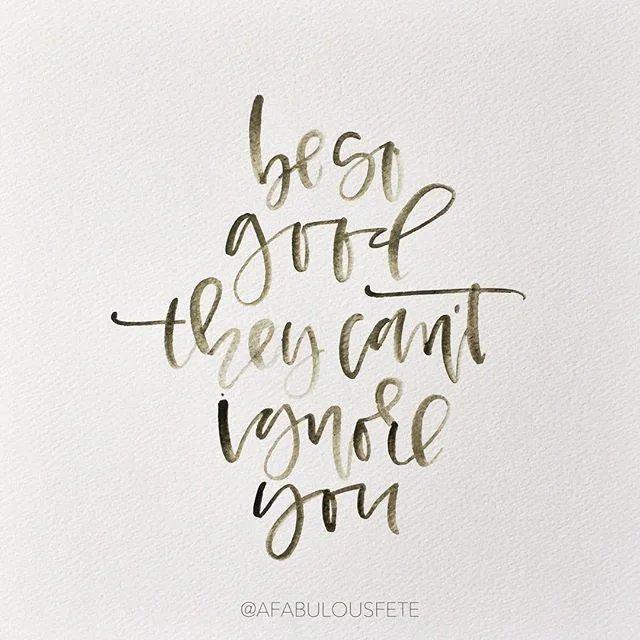 be so
good
they can't
ignore
you
@AFABULOUSFETE